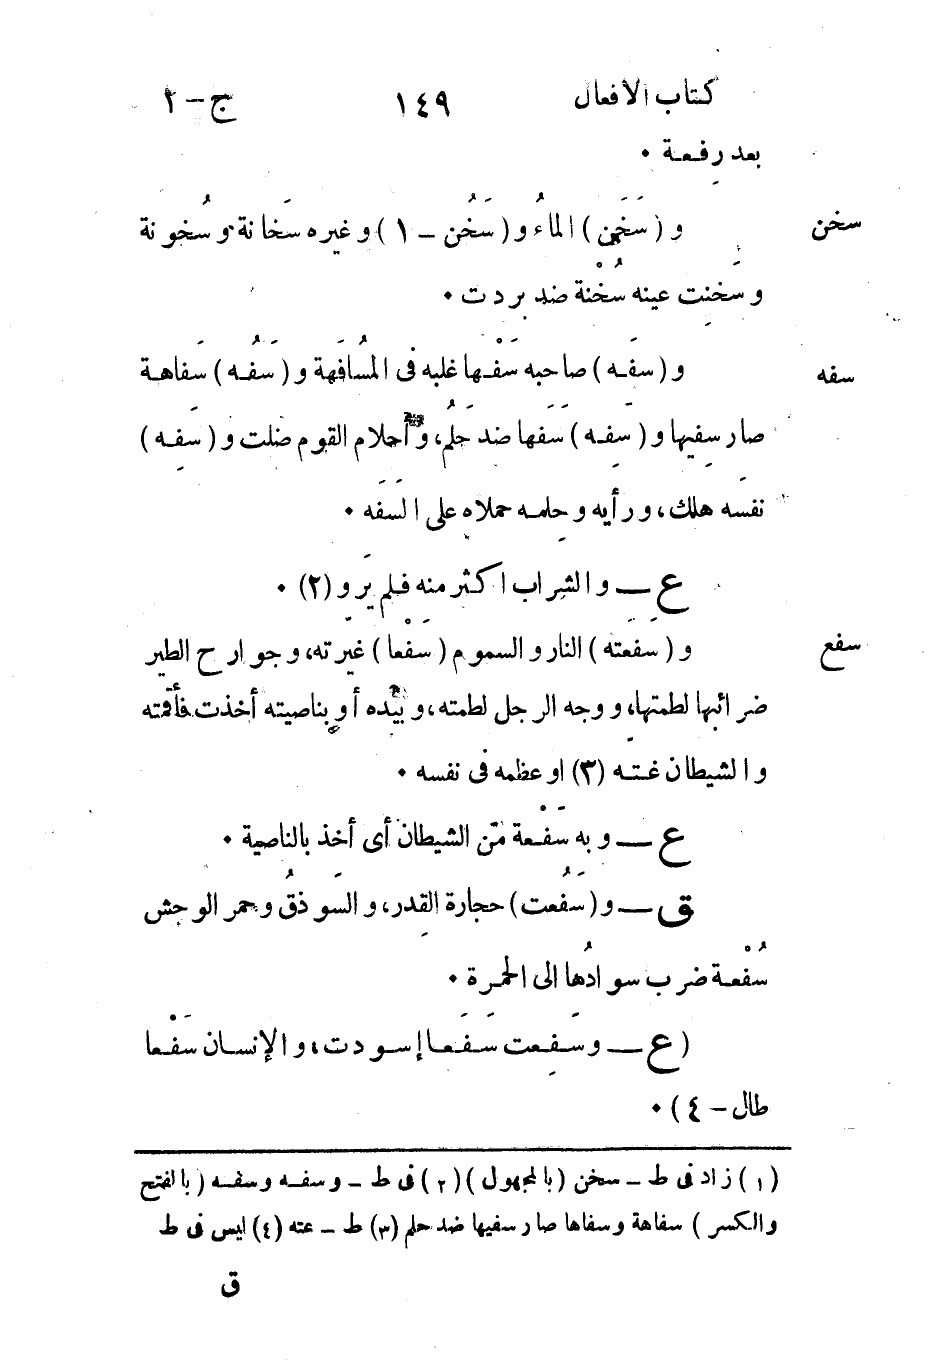 كتاب الافعال ١٤٩ ج-٢
بعد رفعة ٠
سخن و (سَخَن) الماءُ و (سَخُن - ١) وغيره سَخانة وسُخونة
و سَخِنت عينه سُخْنة ضد بردت ٠
سفه و (سَفِه) صاحبه سَفْها غلبه فى المُسافَهة و (سَفُه) سَفاهة
صار سفيها و (سَفِه) سَفَها ضد حَلُم، و أحلام القوم ضلت و (سَفِه)
نفسَه هلك، و رأيه و حلمه حملاه على السَفَه ٠
ع ــ و الشراب اكثر منه فلم يَرو (٢) ٠
سفع و (سَفَعَته) النار و السموم (سَفْعا) غيرته، و جوارح الطير
ضرائبها لطمتها، و وجه الرجل لطمته، و بيده أو بناصيته أخذت فأقمته
و الشيطان غته (٣) او عظمه فى نفسه ٠
ع ــ و به سَفْعة من الشيطان أى أخذ بالناصية ٠
ق ــ و (سَفُعت) حجارة القِدر، و السَوذقُ و حمر الوحش
سُفْعة ضرب سوادُها الى الحمرة ٠
(ع ــ و سَفِعت سَفَعا إسودت، و الإنسان سَفْعا
طال - ٤) ٠
(١) زاد فى ط - سخن (بالمجهول) (٢) فى ط - وسفه وسفه (بالفتح
والكسر) سفاهة وسفاها صار سفيها ضد حلم (٣) ط - عته (٤) ليس فى ط
ق